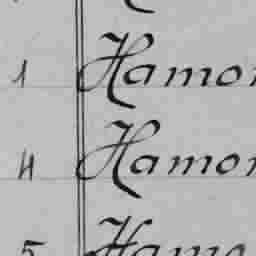 1 Hamon
4 Hamon
5 Hamo